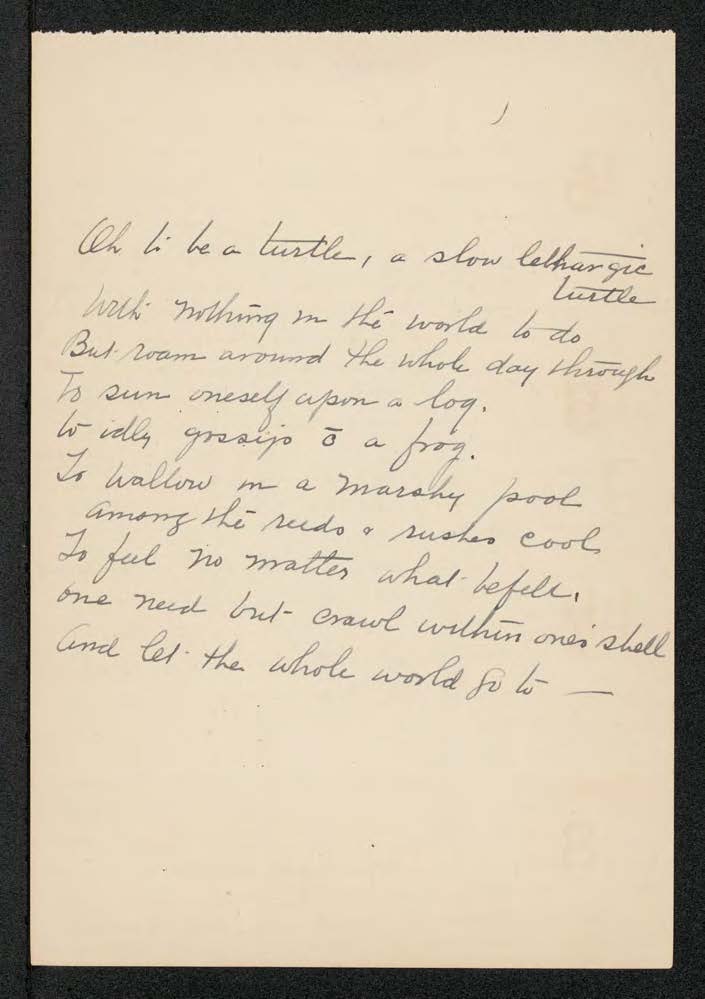 Oh to be a turtle, a slow lethargic
turtle
With nothing in the world to do
But roam around the whole day through
To sun oneself upon a log.
to idly gossip c̄ a frog.
To wallow in a marshy pool
among the reeds & rushes cool
To feel no matter what befell,
one need but crawl within one's shell
And let the whole world go to —